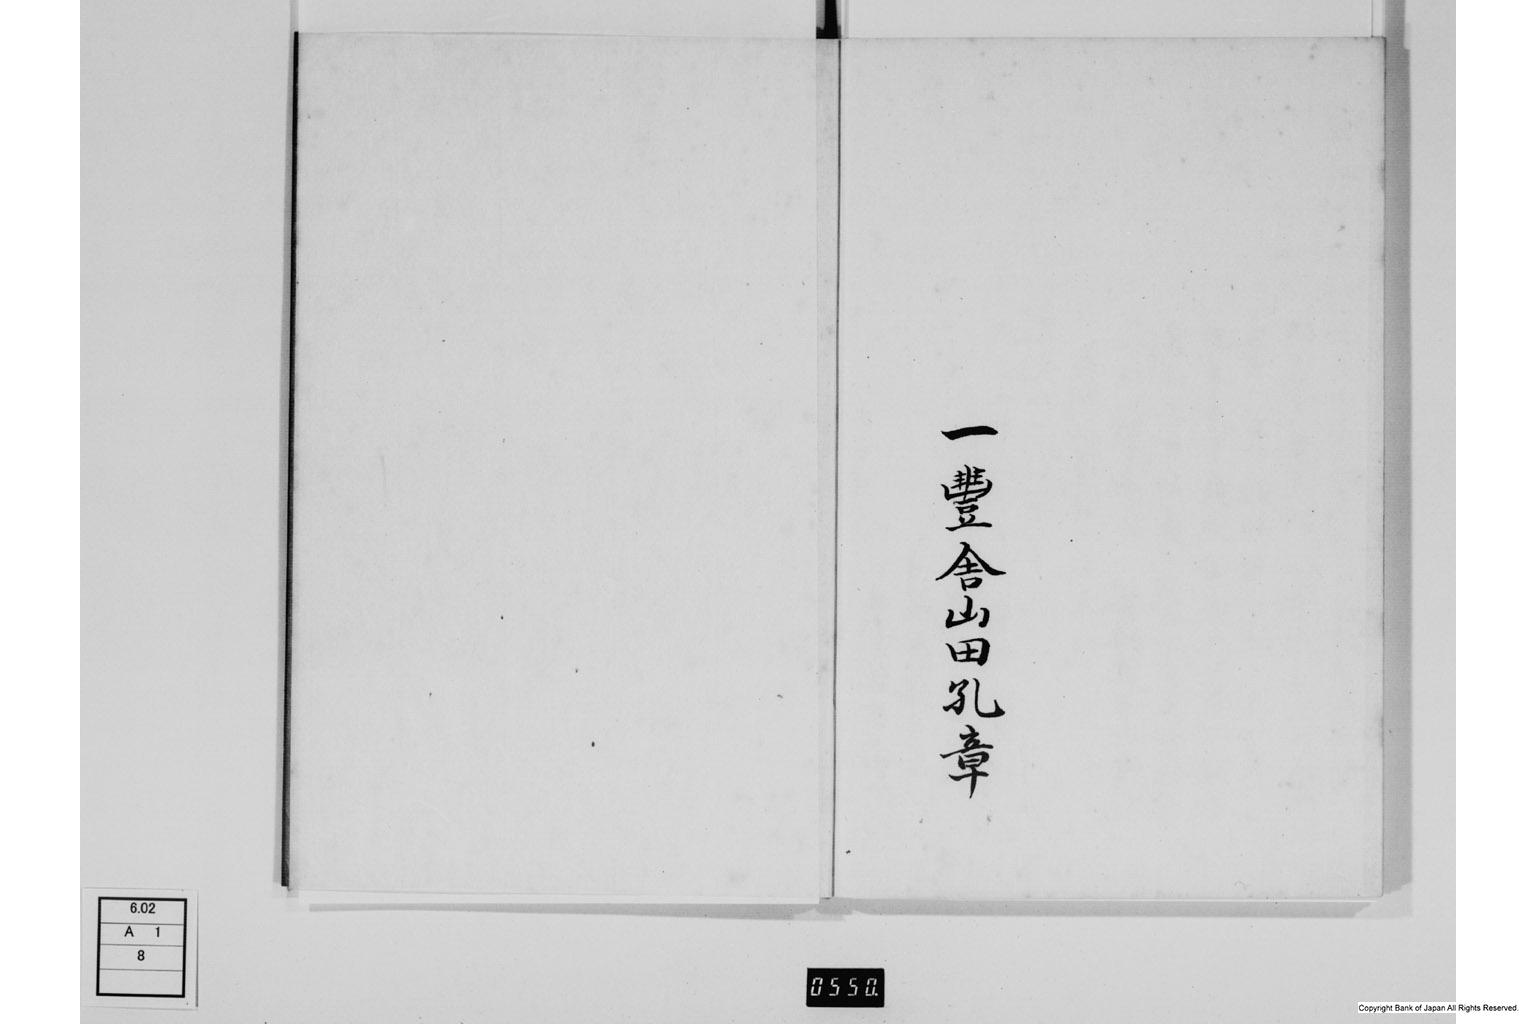 一豐舎山田孔章
6.02
A 1
8
0550.
Copyright Bank of Japan All Rights Reserved.